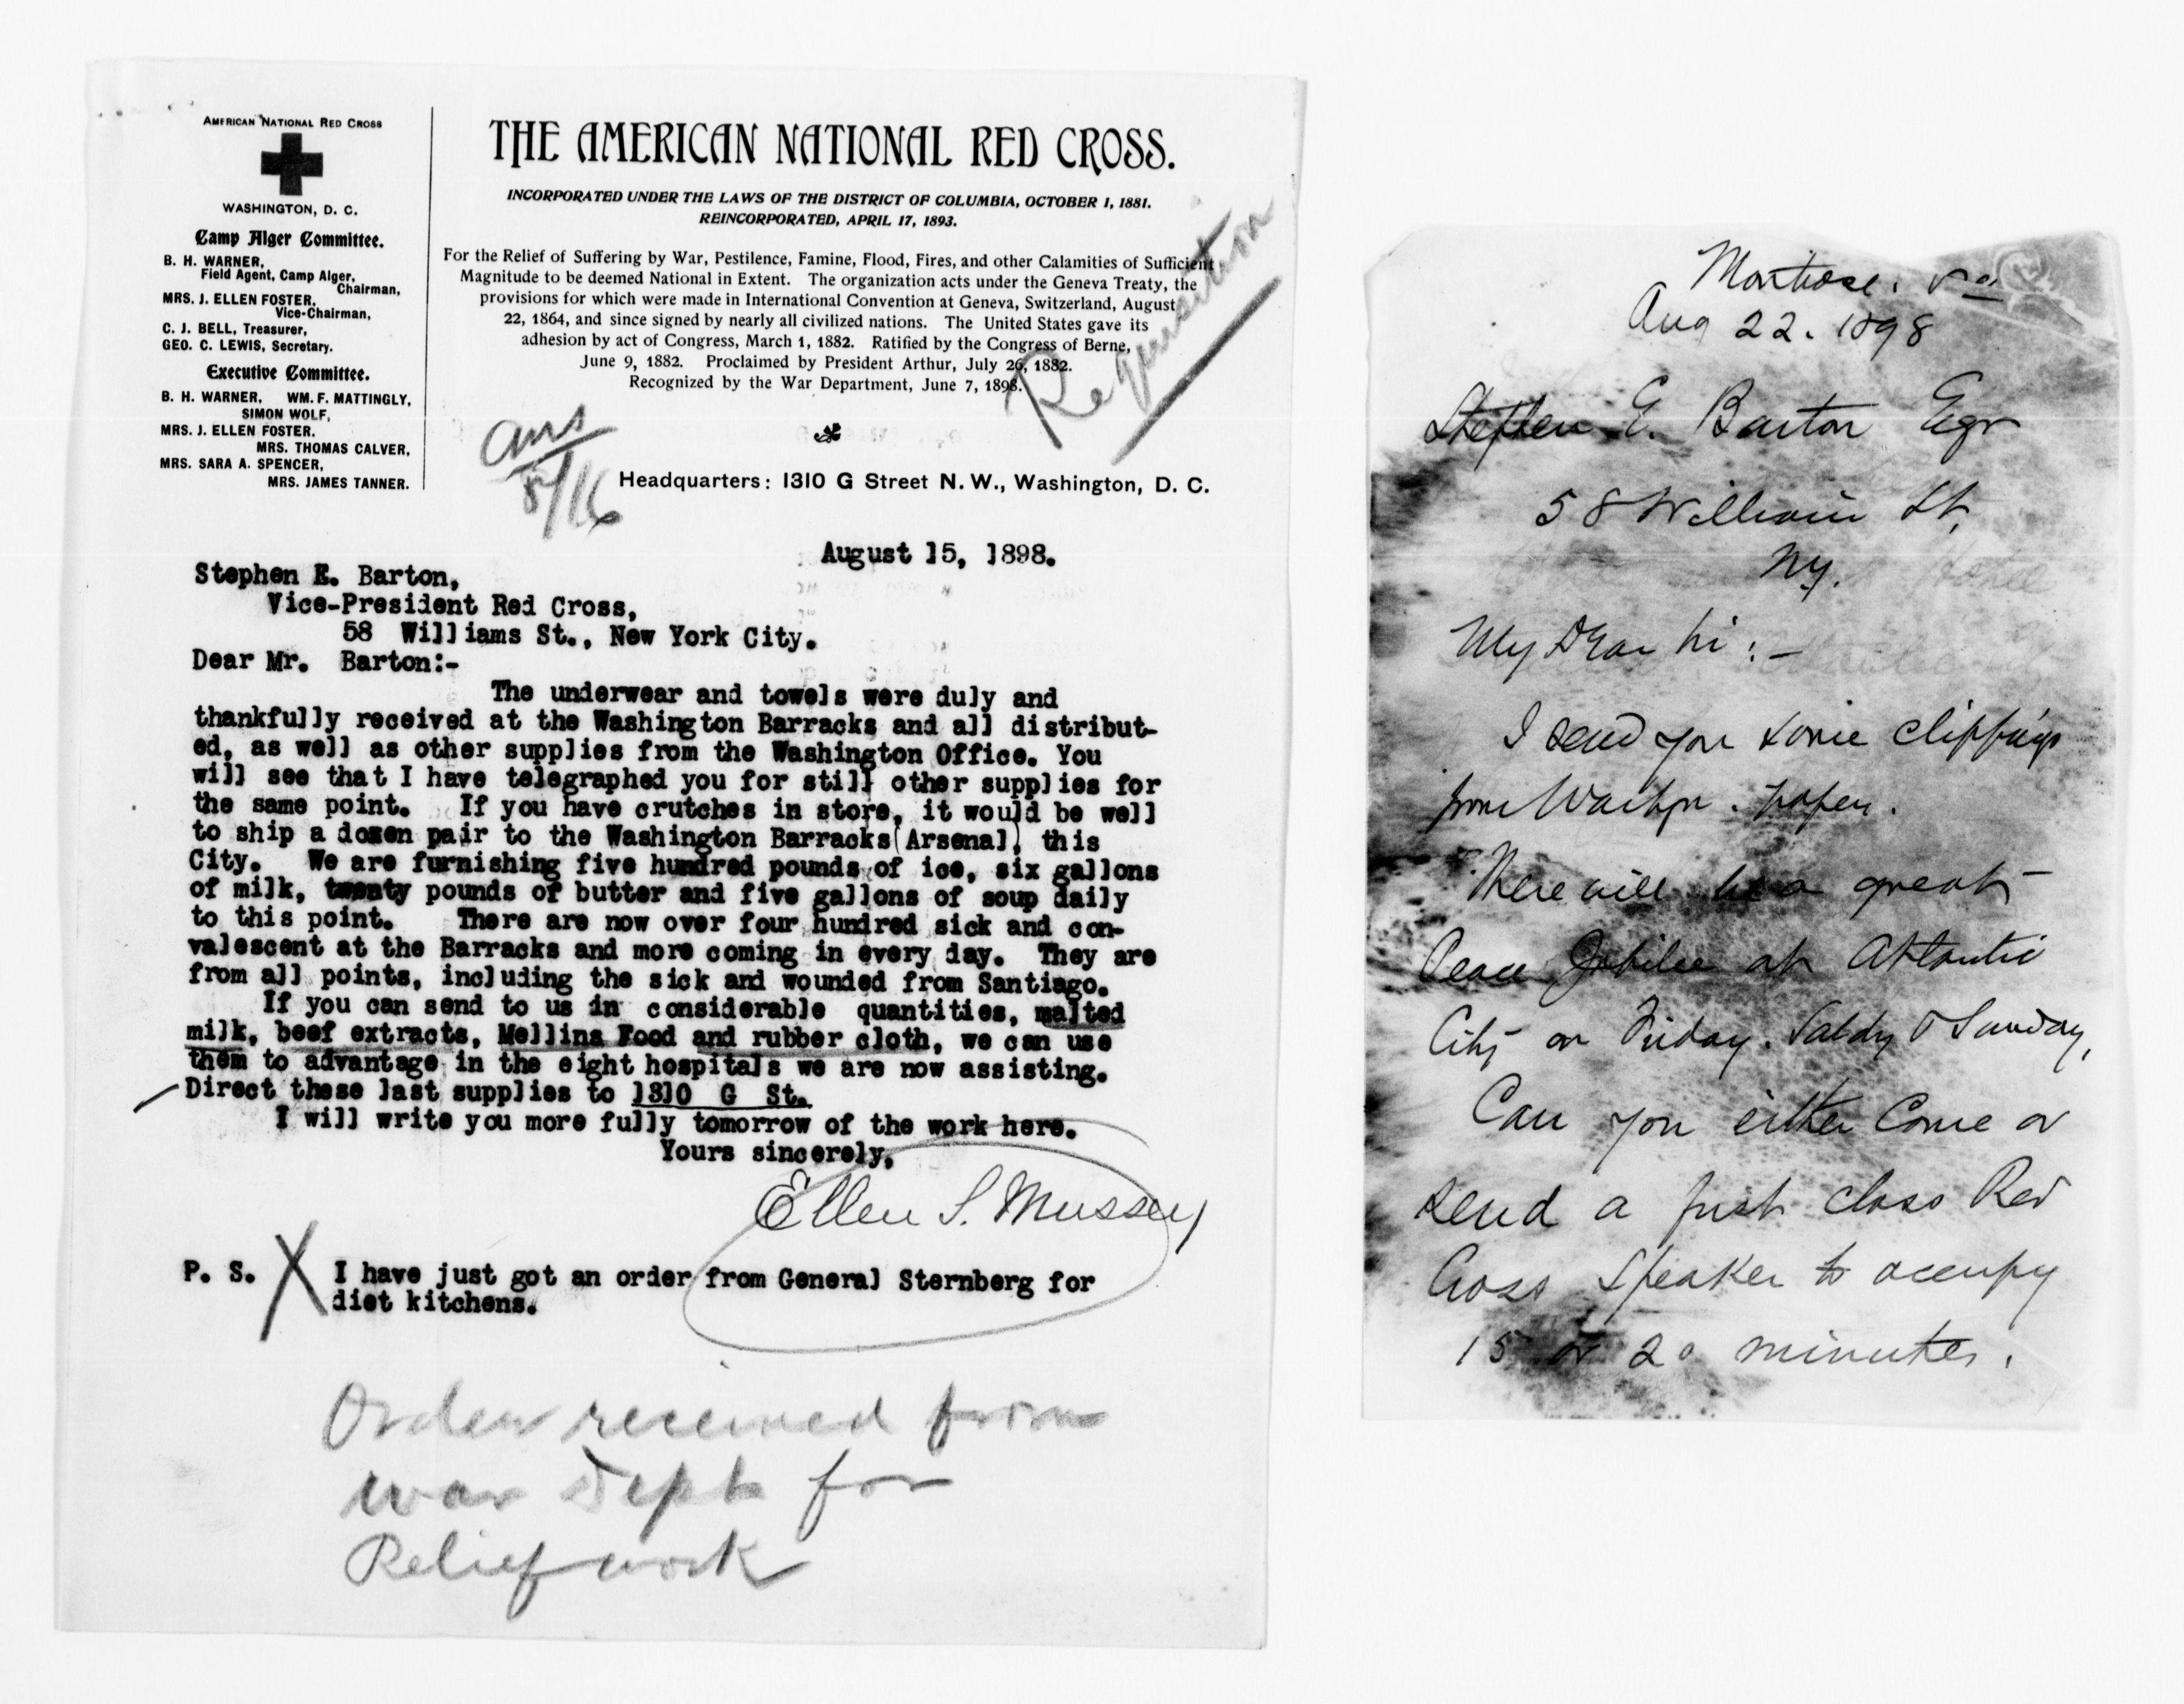 AMERICAN NATIONAL RED CROSS
WASHINGTON, D. C.
Camp Alger Committee.
B. H. WARNER,
Field Agent, Camp Alger,
Chairman,
MRS. J. ELLEN FOSTER,
Vice-Chairman,
C. J. BELL, Treasurer,
GEO. C. LEWIS, Secretary.
Executive Committee.
B. H. WARNER, WM. F. MATTINGLY,
SIMON WOLF,
MRS. J. ELLEN FOSTER,
MRS. THOMAS CALVER,
MRS. SARA A. SPENCER,
MRS. JAMES TANNER.
THE AMERICAN NATIONAL RED CROSS.
INCORPORATED UNDER THE LAWS OF THE DISTRICT OF COLUMBIA, OCTOBER 1, 1881.
REINCORPORATED, APRIL 17, 1893.
For the Relief of Suffering by War, Pestilence, Famine, Flood, Fires, and other Calamities of Sufficient
Magnitude to be deemed National in Extent. The organization acts under the Geneva Treaty, the
provisions for which were made in International Convention at Geneva, Switzerland, August
22, 1864, and since signed by nearly all civilized nations. The United States gave its
adhesion by act of Congress, March 1, 1882. Ratified by the Congress of Berne,
June 9, 1882. Proclaimed by President Arthur, July 26, 1882.
Recognized by the War Department, June 7, 1898.
Requisition
ans
8/16
Headquarters: 1310 G Street N. W., Washington, D. C.
August 15, 1898.
Stephen E. Barton,
Vice-President Red Cross,
58 Williams St., New York City.
Dear Mr. Barton:-
The underwear and towels were duly and
thankfully received at the Washington Barracks and all distribut-
ed, as well as other supplies from the Washington Office. You
will see that I have telegraphed you for still other supplies for
the same point. If you have crutches in store, it would be well
to ship a dozen pair to the Washington Barracks(Arsenal) this
City. We are furnishing five hundred pounds of ice, six gallons
of milk, twenty pounds of butter and five gallons of soup daily
to this point. There are now over four hundred sick and con-
valescent at the Barracks and more coming in every day. They are
from all points, including the sick and wounded from Santiago.
If you can send to us in considerable quantities, malted
milk, beef extracts, Mellins Food and rubber cloth, we can use
them to advantage in the eight hospitals we are now assisting.
Direct these last supplies to 1310 G St.
I will write you more fully tomorrow of the work here.
Yours sincerely,
Ellen S. Mussey
P. S. X I have just got an order from General Sternberg for
diet kitchens.
Order received from
war Dept for
Relief work
Montrose. Pa
Aug 22. 1898
Stephen E. Barton Eqr
58 William St,
NY.
My Dear Sir:-
I send you some clippings
from Washgn. papers.
There will be a great
Peace Jubilee at Atlantic
City on Friday. Satdy & Sunday,
Can you either Come or
send a first class Red
Cross Speaker to occupy
15 or 20 minutes.